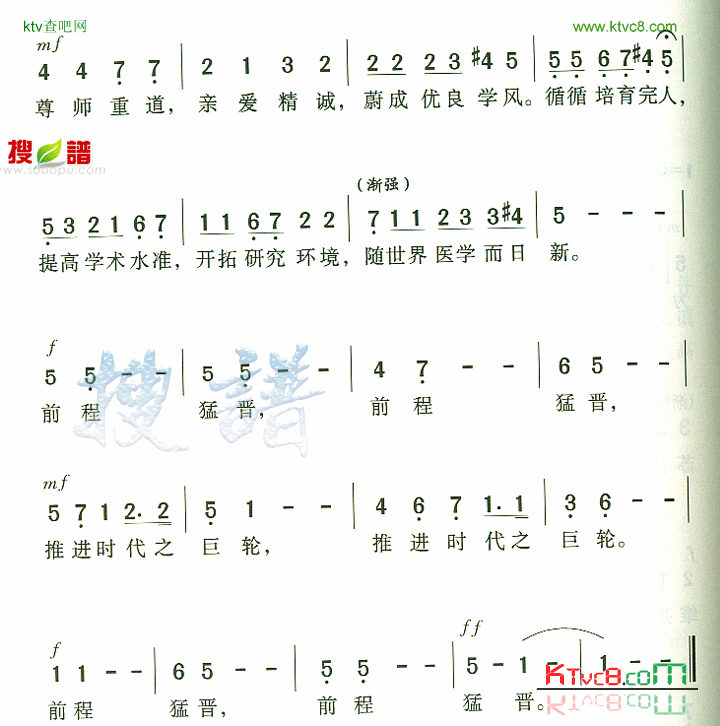 ktv查吧网 www.ktvc8.com
mf
4 4 7 7 | 2 1 3 2 | 2 2 2 3 #4 5 | 5 5 6 7 #4 5 |
尊师重道，亲爱精诚，蔚成优良学风。循循培育完人，
搜谱
www.sooopu.com
（渐强）
5 3 2 1 1 6 7 | 1 1 6 7 2 2 | 7 1 1 2 3 3 #4 | 5 - - - |
提高学术水准，开拓研究环境，随世界医学而日新。
f
5 5 - - | 5 5 - - | 4 7 - - | 6 5 - - |
前程猛晋，前程猛晋，
搜谱
mf
5 7 1 2. 2 | 5 1 - - | 4 6 7 1. 1 | 3 6 - - |
推进时代之巨轮，推进时代之巨轮。
f ff
1 1 - - | 6 5 - - | 5 5 - - | 5 - 1 - | 1 - - ‖
前程猛晋，前程猛晋。
KTvc8.com